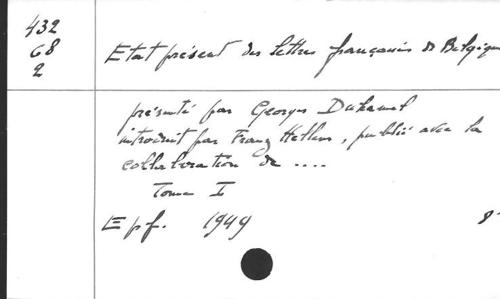 432
68
2
Etat présent des lettres françaises de Belgique
présenté par Georges Duhamel
introduit par Franz Hellens, publié avec la
collaboration de ....
Tome I
E pf. 1949 8°